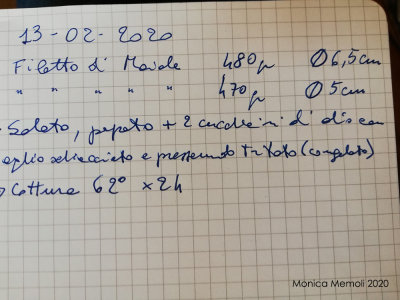 13-02-2020
Filetto di Maiale 480gr Ø 6,5cm
" " " " " 470gr Ø 5cm
- Salato, pepato + 2 cucchiaini di di con
aglio schiacciato e prezzemolo tritato (congelato)
Cottura 62° x 2h
Monica Memoli 2020